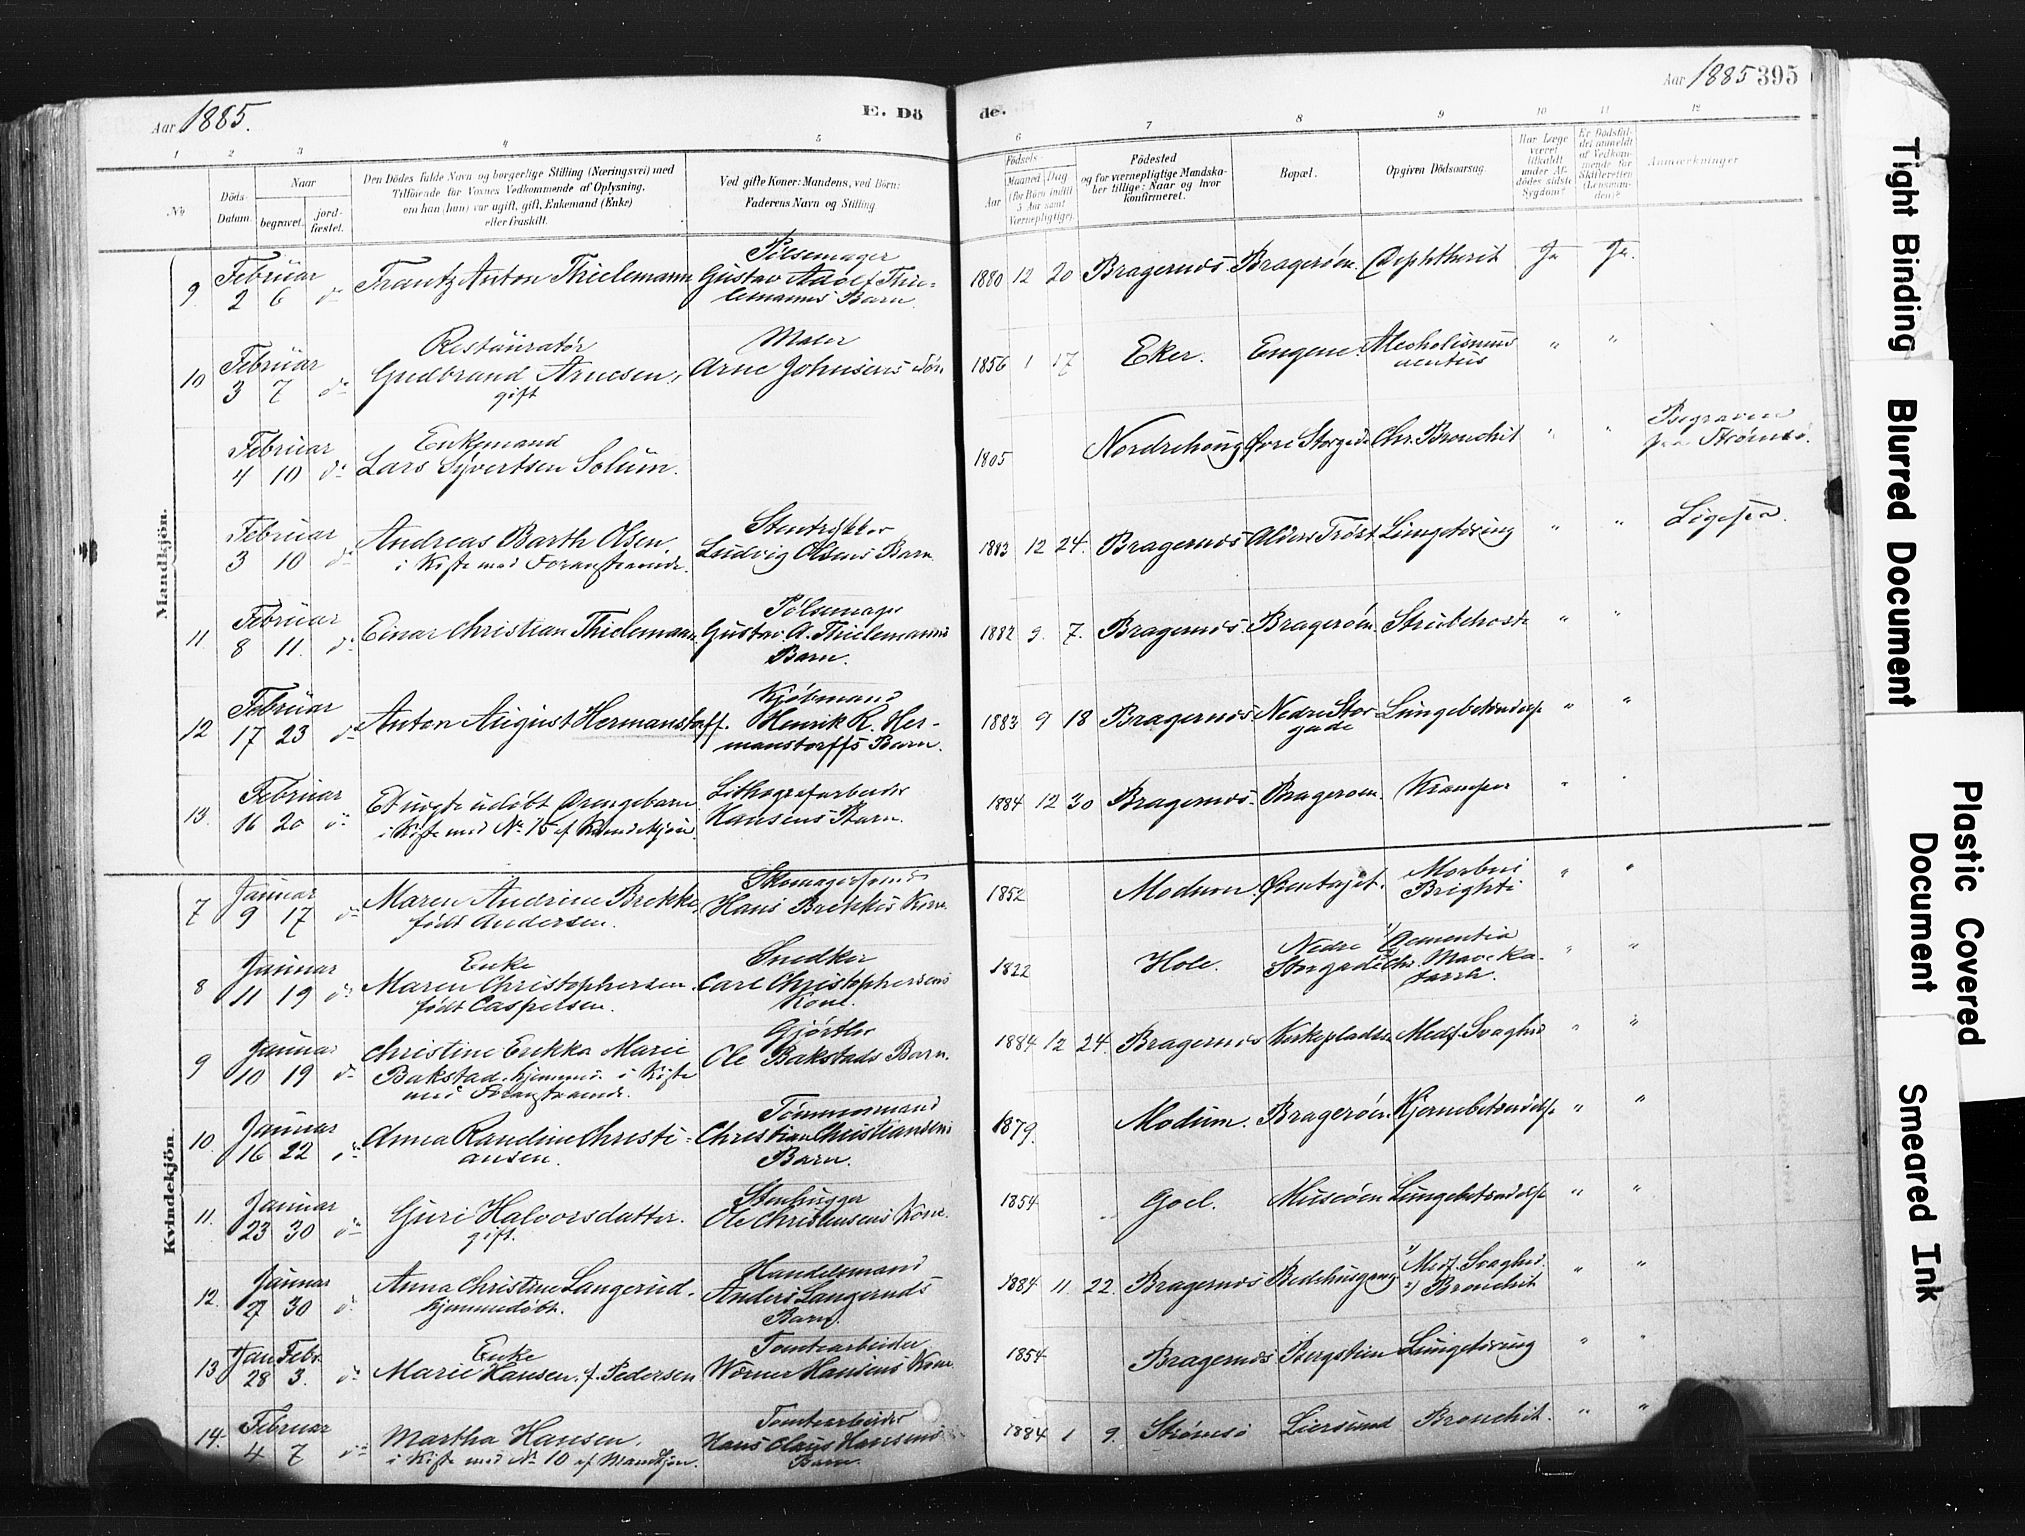 Aar 1885.
E. Dö
1 2 3 4 5
No
Döds-Datum.
Naar
begravet.
jord-fæstet.
Den Dödes fulde Navn og borgerlige Stilling (Næringsvei) med
Tilföiende for Voxnes Vedkommende af Oplysning,
om han (hun) var ugift, gift, Enkemand (Enke)
eller fraskilt.
Ved gifte Koner: Mandens, ved Börn:
Faderens Navn og Stilling.
de.
Aar 1885 395
6 7 8 9 10 11 12
Födsels-
Aar
Maaned Dag
(for Börn indtil
5 Aar samt
Værnepligtige).
Födested
og for værnepligtige Mandska-
ber tillige: Naar og hvor
konfirmeret.
Bopæl.
Opgiven Dödsaarsag.
Har Læge
været
tilkaldt
under Af-
dödes sidste
Sygdom?
Er Dödsfal-
det anmeldt
af Vedkom-
mende for
Skifteretten
(Lensman-
den)?
Anmærkninger
Mandkjön.
9 Februar 2 6 do Frantz Anton Thielemann Pølsemager Gustav Adolf Thie-
lemanns Barn. 1880 12 20 Bragernæs. Bragerøen. Diphtherit Ja Ja.
10 Februar 3 7 do Restauratør Gudbrand Arnesen, gift Maler Arne Johnsens Søn 1856 1 17 Eker. Engene. Alcoholismus " "
Februar 4 10 do Enkemand Lars Syvertsen Solum. 1805 Nordrehoug Øvre Storgade Chr. Bronchit " " Begraven
paa Strømsø.
Februar 3 10 do Andreas Barth Olsen.
i Kiste med Foranstaaende. Stentrykker Ludvig Olsens Barn. 1883 12 24. Bragernæs Alders Trøst Lungetæring " " Ligesaa.
11 Februar 8 11. do Einar Christian Thielemann. Pølsemager Gustav A. Thielemanns
Barn. 1882 9. 7. Bragernæs. Bragerøen. Strubehoste " "
12 Februar 17 23 do Anton August Hermanstorff. Kjøbmand Henrik R. Her-
manstorffs Barn. 1883 9 18 Bragernæs Nedre Stor-
gade Lungebetændelse " "
13. Februar 16 20 do Et uægte udøbt Drengebarn
i Kiste med No 15 af Kvindekjøn. Lithografarbeider Hansens Barn. 1884 12 30 Bragernæs. Bragerøen. Kramper "
Kvindekjön.
7 Januar 9 17 do Maren Andrine Brekke,
født Andersen. Skomagersvend Hans Brekkes Kone. 1852 Modum. Øventøjet. Morbus
Brighti " "
8 Januar 11 19 do Enke Maren Christophersen.
født Caspersen. Snedker Carl Christophersens
Kone. 1822 Hole. Nedre
Storgade Dementia
Chr. Maveka-
tarrh. " "
9 Januar 10 19 do Christine Erikka Marie
Bakstad. hjemmed. i Kiste
med Foranstaaende. Gjørtler Ole Bakstads Barn. 1884 12 24. Bragernæs Kirkepladsen Medf. Svaghed " "
10. Januar 16 22 do Anna Randine Christi-
ansen. Tømmermand Christian Christiansens
Barn. 1879. Modum. Bragerøen. Hjernebetændelse " "
11. Januar 23 30 do Guri Halvorsdatter.
gift. Stenhugger Ole Christensens Kone. 1854 Goel. Museøen Lungebetændelse " "
12. Januar 27 30 do Anna Christine Langerud.
hjemmedøbt. Handelsmand Anders Langeruds
Barn. 1884 11. 22. Bragernæs Bedehusgang 1) Medf. Svaghed.
2) Bronchit " "
13 Jan 28 Febr. 3. do Enke Marie Hansen. f. Pedersen Tomtearbeider Werner Hansens Kone 1854 Bragernæs Bergstien Lungetæring " "
14. Februar 4 7 do Martha Hansen.
i Kiste med No 10 af Mandkjøn. Tomtearbeider Hans Claus Hansens
Barn. 1884 1 9. Strømsø Liersund Bronchit. " "
Tight Binding
Blurred Document
Plastic Covered
Document
Smeared Ink